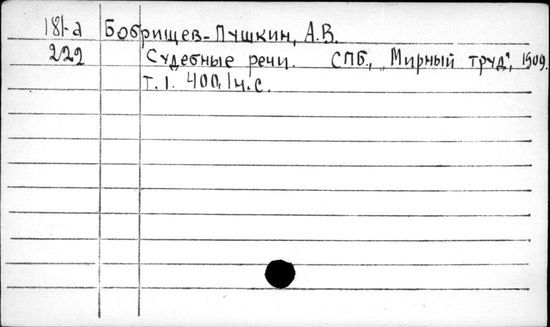 181-а Бобрищев-Пушкин, А.В.
222 Судебные речи. СПБ., "Мирный труд", 1909.
Т.1. 400,1ч.с.